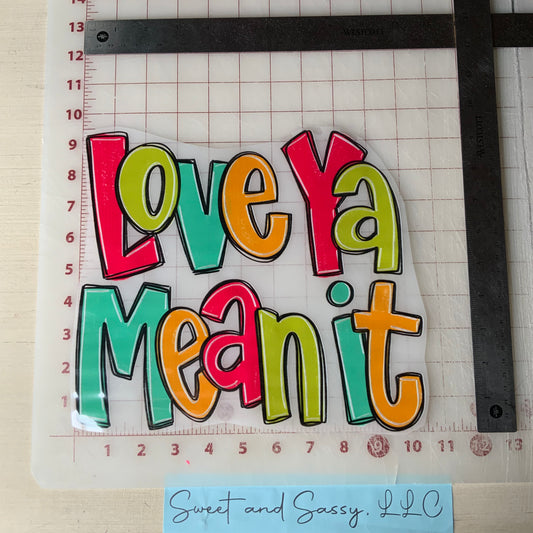 14
13
12
11
10
9
8
7
6
5
4
3
2
1
WESTCOTT
Love Ya
Mean it
1 2 3 4 5 6 7 8 9 10 11 12 13
Sweet and Sassy, LLC